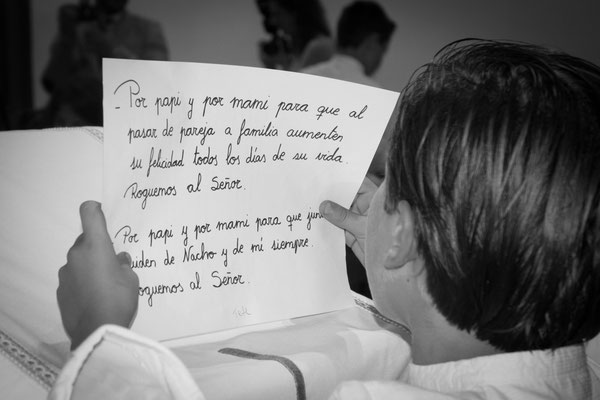 - Por papi y por mami para que al
pasar de pareja a familia aumenten
su felicidad todos los días de su vida.
Roguemos al Señor.
Por papi y por mami para que jun
uiden de Nacho y de mí siempre.
Roguemos al Señor.